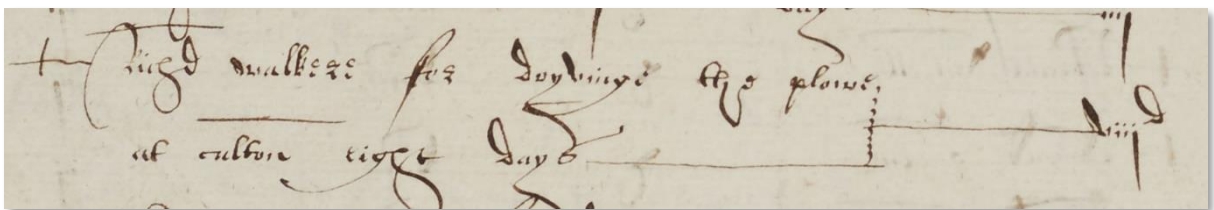 Richd walkere for dryvinge the plowe
at culton eight days viijd